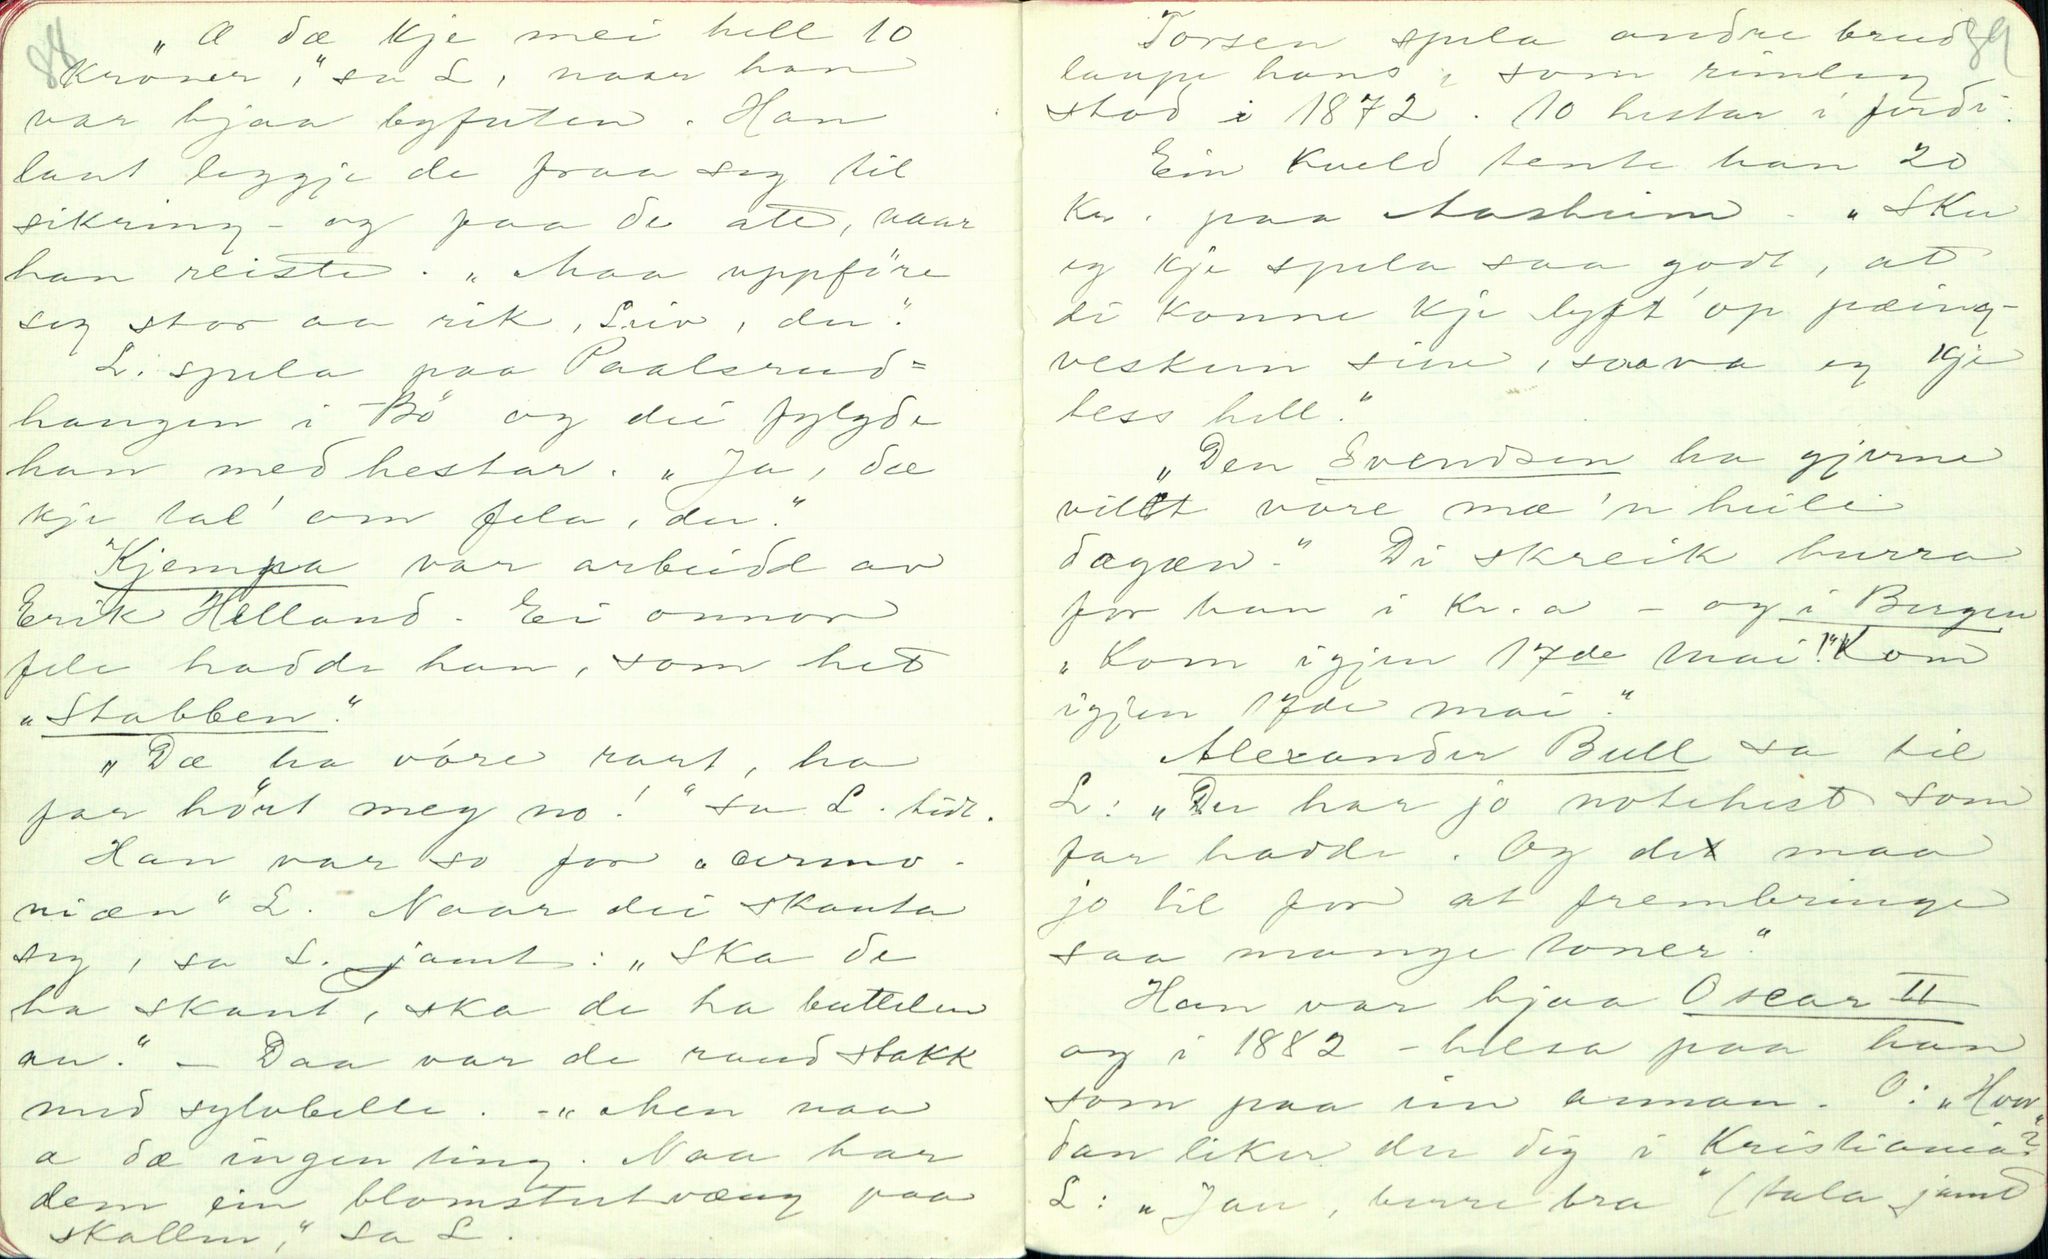 88
„Æ dæ kje mei hell 10
kroner," sa L, naar han
var hjaa byfuten. Han
laut leggje de fraa seg til
sikring - og paa de att, naar
han reiste. „Maa uppföre
seg stor aa rik, Leiv, du".
L. spela paa Paalsrud=
haugen i Bö og dei fylgde
han med hestar. „Ja, dæ
kje tal' om fela, du."
Kjempa var arbeidd av
Erik Helland. Ei onnor
fele hadde han, som het
„Stabben".
„Dæ ha vóre rart, ha
far hört meg no!" sa L. tidt.
Han var so for „armo-
niæn" L. Naar dei skauta
seg, sa L. jamt: „Ska de
ha skaut, ska de ha buttelen
au." - Daa var de raud stakk
med sylvbelte. - „Men naa
æ dæ ingen ting. Naa har
dem ein blomstertvæng paa
skallen," sa L.
89
Torsen spela andre brud-
laupe hans, som rimleg
stod i 1872. 10 hestar i ferdi.
Ein kveld tente han 20
kr. paa Aasheim. „Sku
eg kje spela saa godt, at
di konne kje lyft' op pæing-
veskun sine, saa va eg kje
tess hell."
„Den Svendsen ha gjerne
villt vóre mæ 'n heile
dagæn." Di skreik hurra
for han i Kr.a - og i Bergen
„Kom igjen 17de mai!" „Kom
igjen 17de mai".
Alexander Bull sa til
L: „Du har jo notehest som
far hadde. Og det maa
jo til for at frembringe
saa mange toner."
Han var hjaa Oscar II
og i 1882 - helsa paa han
som paa ein annan. O: „Hvor-
dan liker du dig i Kristiania?"
L: „Jau, berre bra" (tala jamt